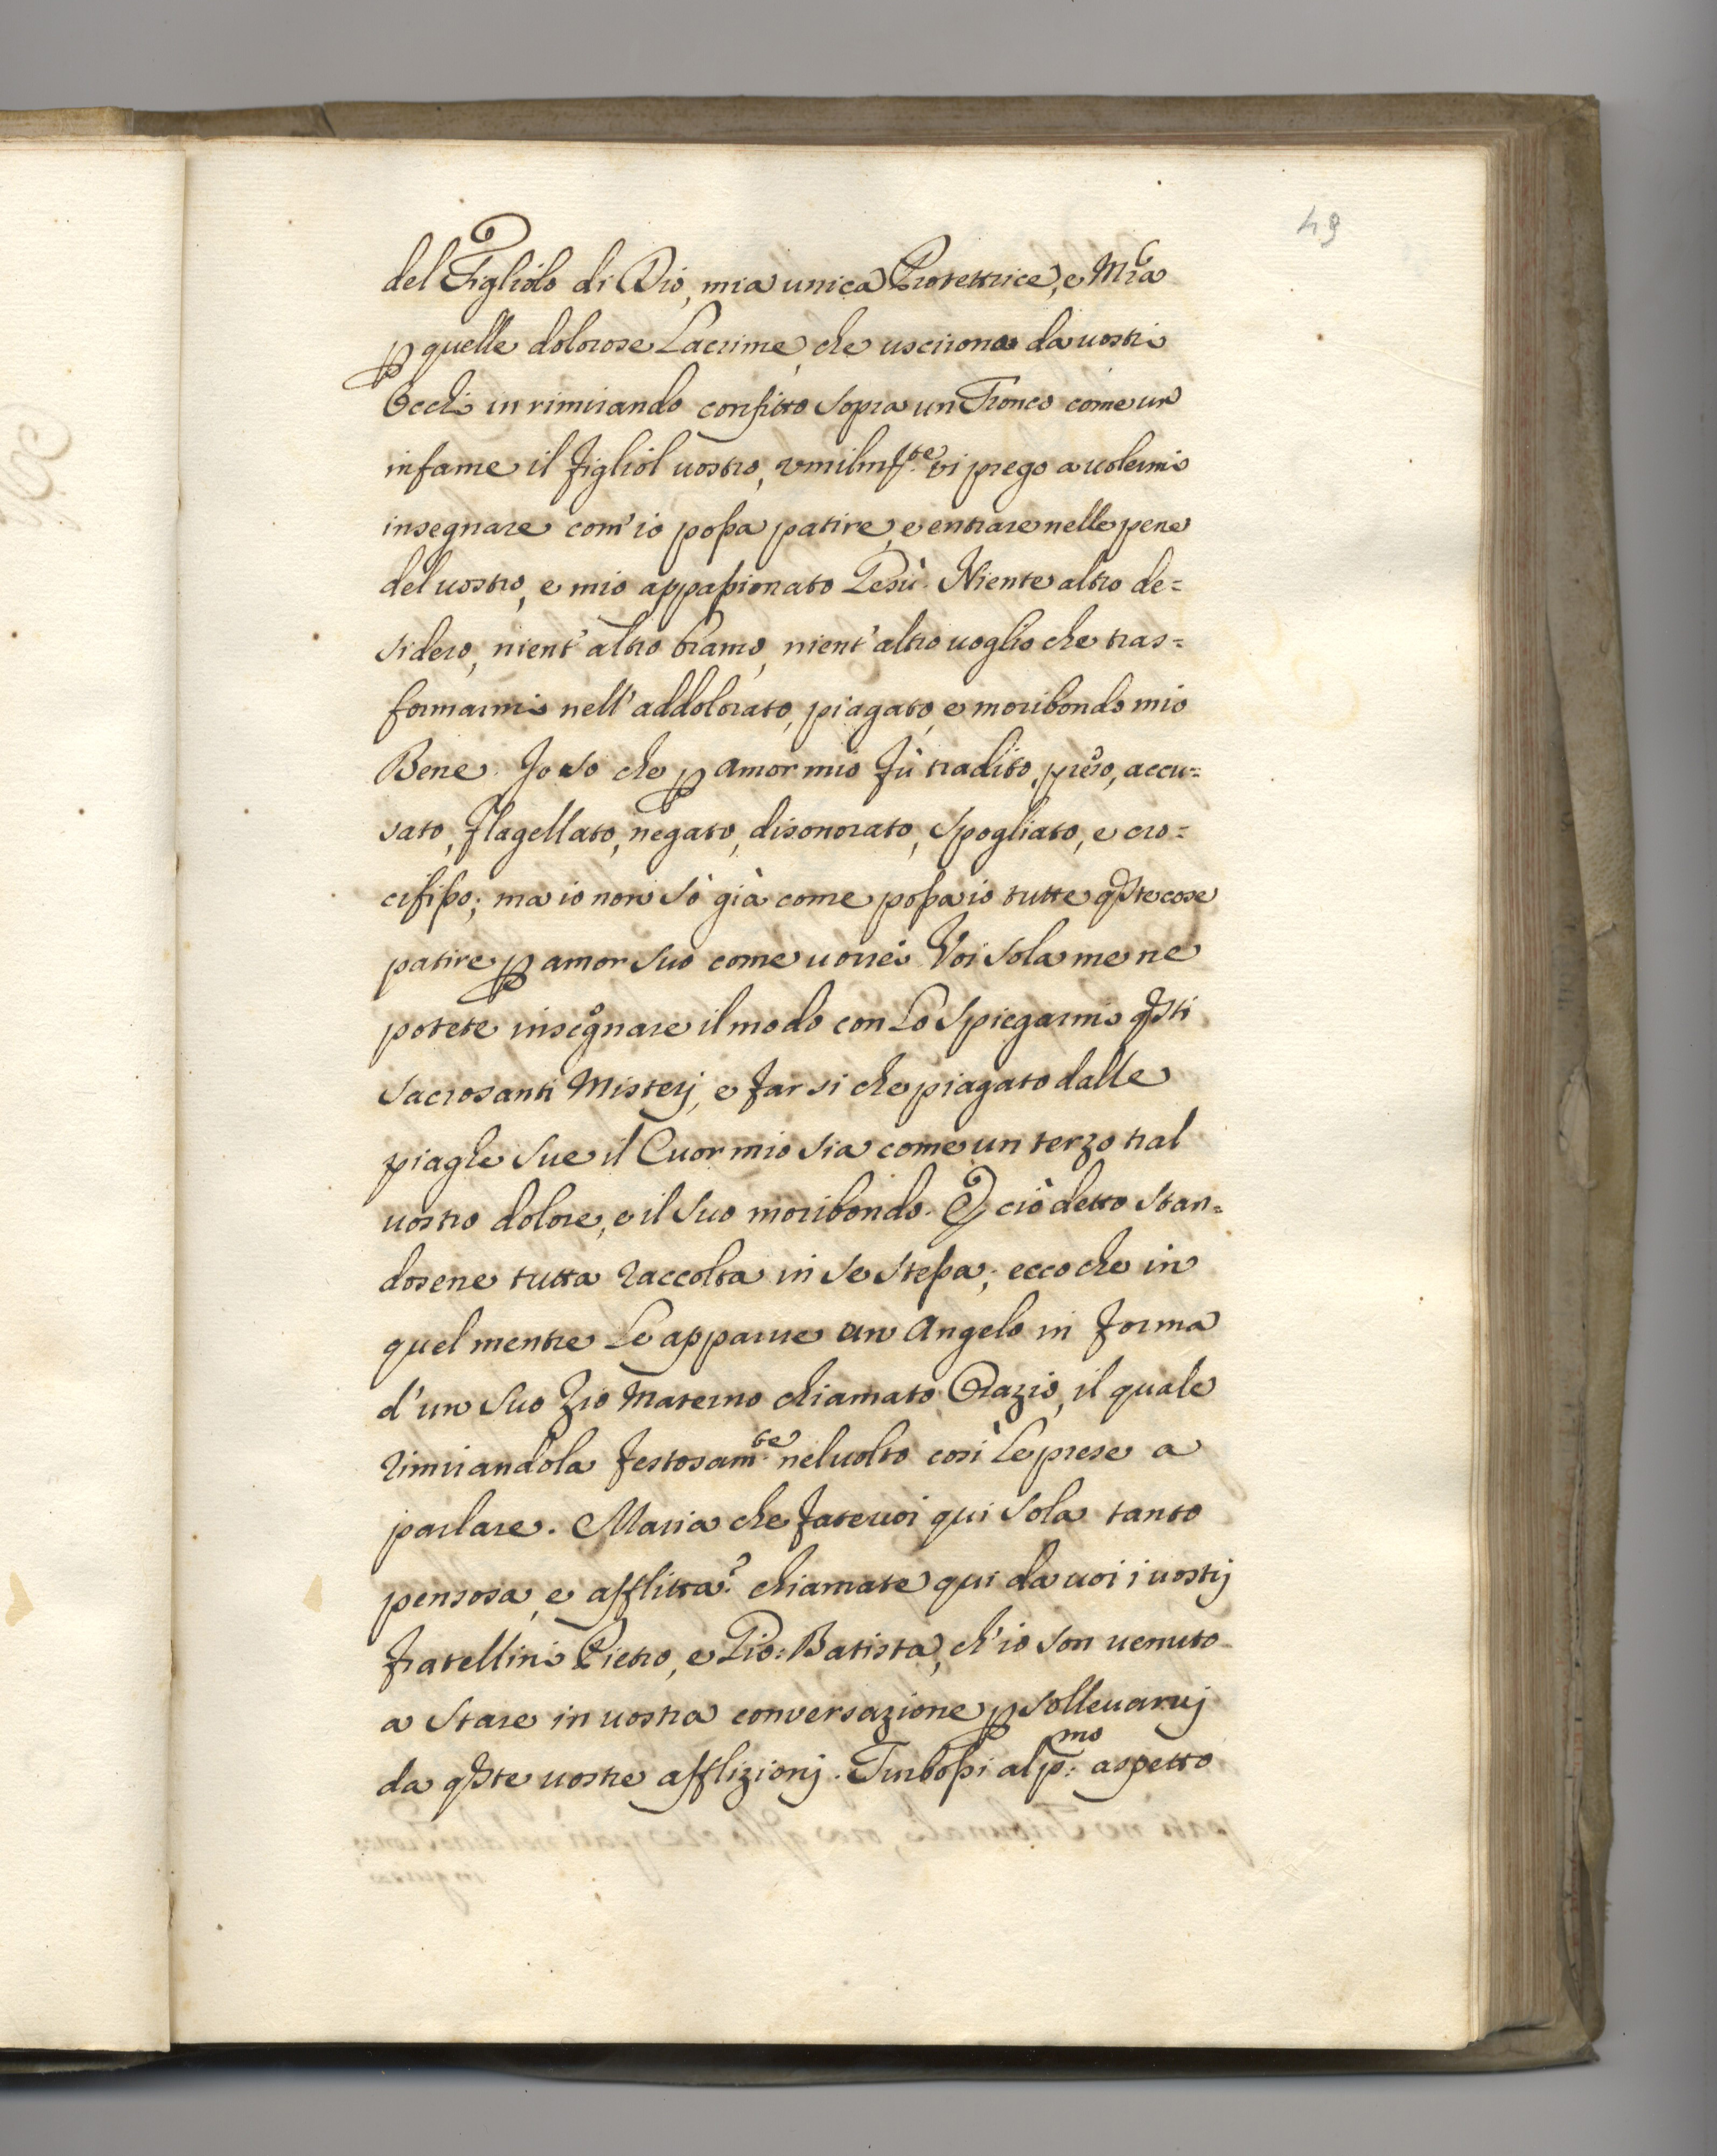 49
del Figliolo di Dio, mia unica Protettrice, e Mra
p quelle dolorose Lacrime, che uscirono da uostri
Occhi in rimirando confitto sopra un Tronco come un
infame il figliol uostro, vmilmte vi prego a uolermi
insegnare com'io possa patire, e entrare nelle pene
del uostro, e mio appassionato Gesù. Niente altro de=
sidero, nient'altro bramo, nient'altro uoglio che tras=
formarmi nell'addolorato, piagato, e moribondo mio
Bene. Io so che p amor mio fù tradito, preso, accu=
sato, flagellato, negato, disonorato, spogliato, e cro=
cifisso; ma io non sò già come possa io tutte qste cose
patire p amor suo come uorrei. Voi sola me ne
potete insegnare il modo con Lo spiegarmi qsti
sacrosanti Misterj, e far si che piagato dalle
piaghe sue il Cuor mio sia come un terzo tral
uostro dolore, e il suo moribondo. E ciò detto stan=
dosene tutta raccolta in se stessa; ecco che in
quel mentre Le apparue un Angelo in forma
d'un suo Zio Materno chiamato Orazio, il quale
rimirandola festosamte nel uolto così Le prese a
parlare. Maria che fate uoi qui sola tanto
pensosa, e afflitta? chiamate qui da uoi i uostrj
fratellini Pietro, e Gio: Batista, ch'io son uenuto
a stare in uostra conversazione p solleuaruj
da qste uostre afflizionj. Turbossi al pmo aspetto